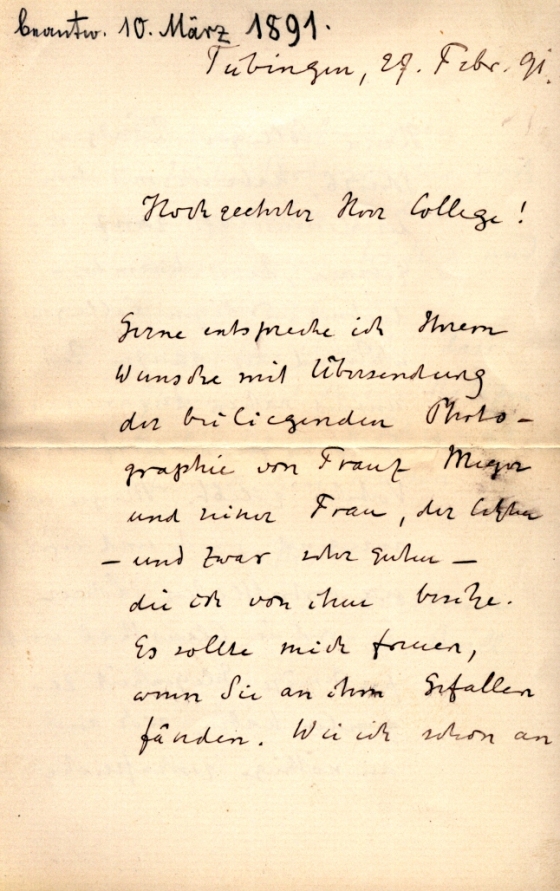 beantw. 10. März 1891.
Tübingen, 27. Febr. 91.
Hochgeehrter Herr College!
Gerne entspreche ich Ihrem
Wunsche mit Übersendung
der beiliegenden Photo-
graphie von Franz Meyer
und seiner Frau, der letzten
– und zwar sehr guten –
die ich von ihm besitze.
Es sollte mich freuen,
wenn Sie an ihm Gefallen
fänden. Wie ich schon an